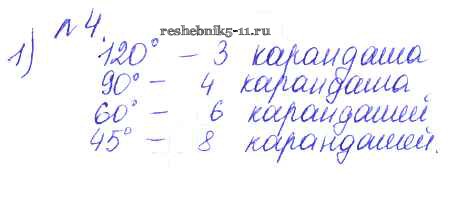 №4.
reshebnik5-11.ru
1) 120° – 3 карандаша
90° – 4 карандаша
60° – 6 карандашей
45° – 8 карандашей.